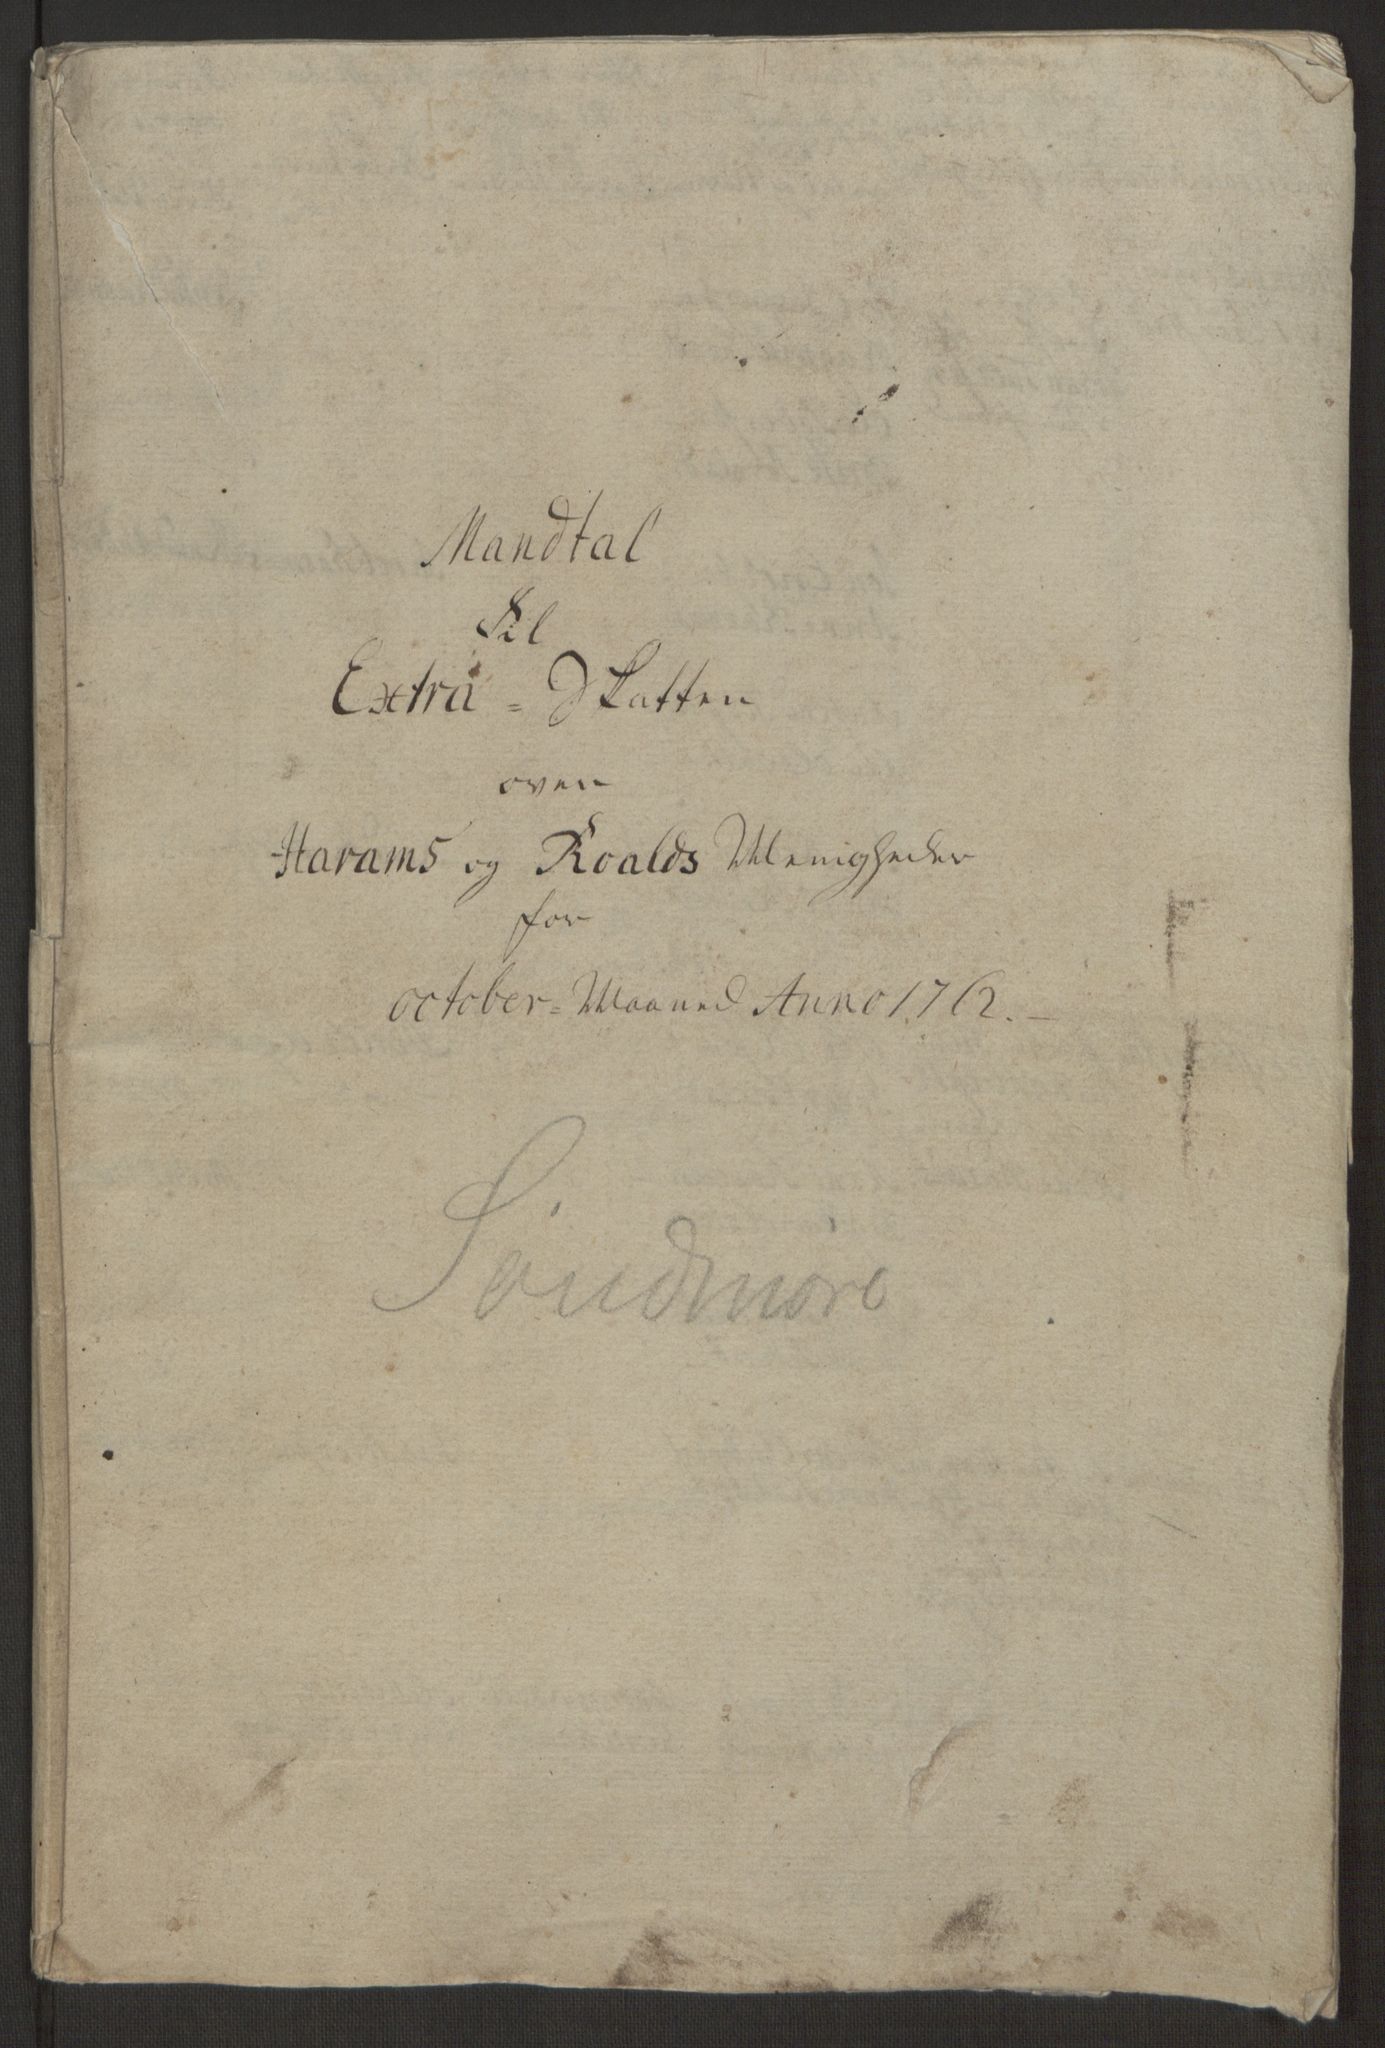 Mandtal
til
Extra = Skatten
over
Harams og Roalds Menigheder
for
october = Maaned Anno 1762. –
Söndmöre